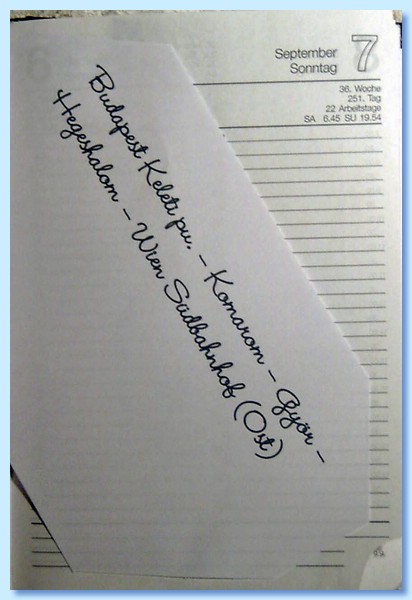 September 7
Sonntag
36. Woche
251. Tag
22 Arbeitstage
SA 6.45 SU 19.54
Budapest Keleti pu. – Komarom – Győr –
Hegeshalom – Wien Südbahnhof (Ost)